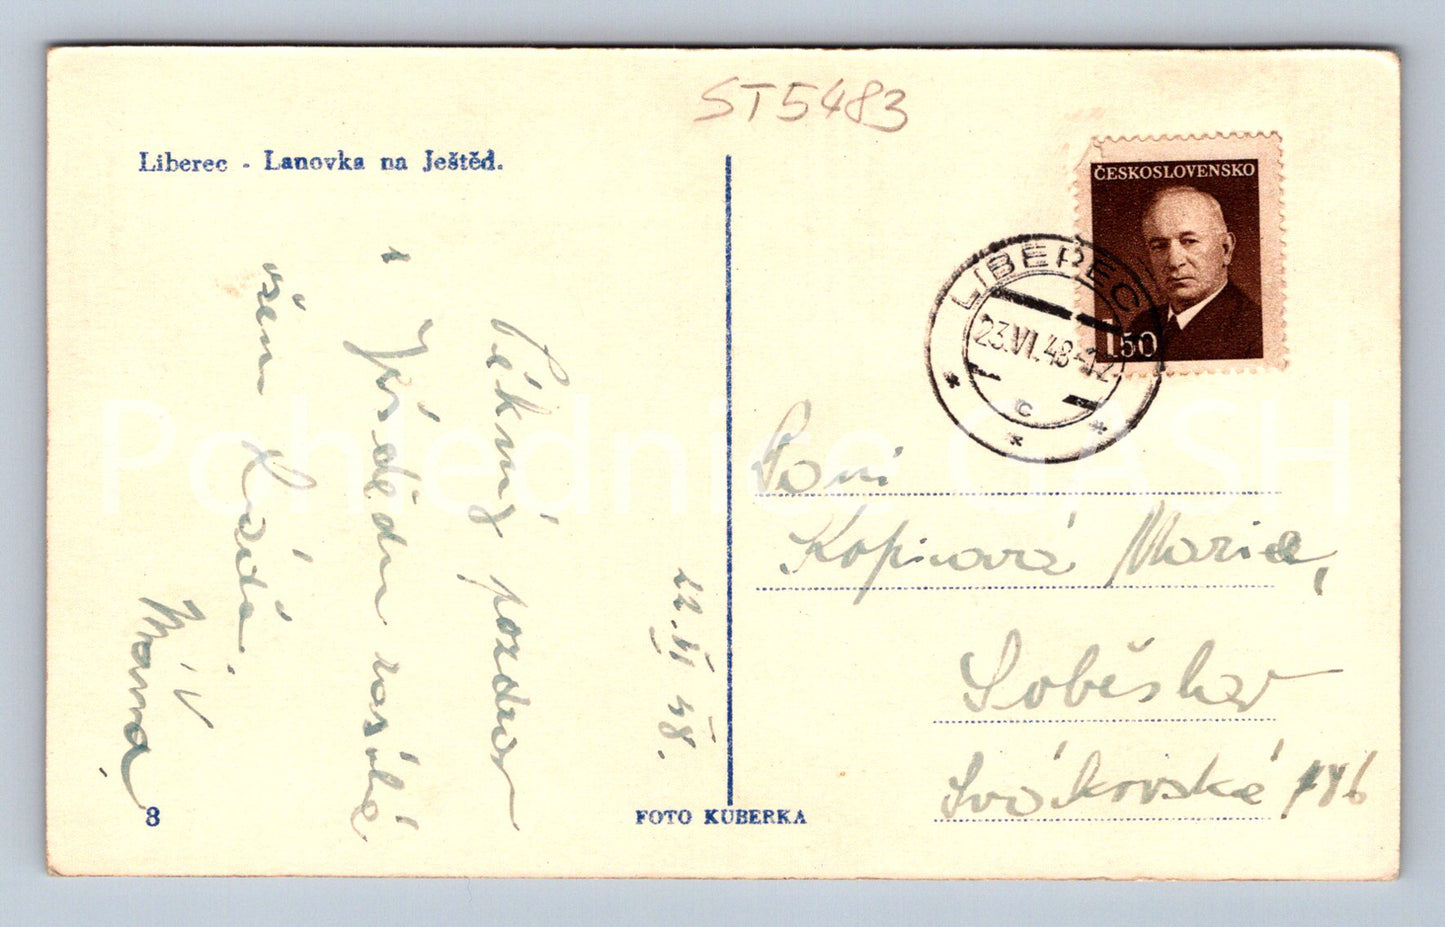 ST5483
Liberec - Lanovka na Ještěd.
ČESKOSLOVENSKO
1.50
LIBEREC
23.VI.48-12
c
22. VI 48.
Pěkný pozdrav
z Ještědu zasílá
všem
Máňa
Paní
Kopicová Marie,
Soběslav
8
FOTO KUBERKA
Pohlednice GASH